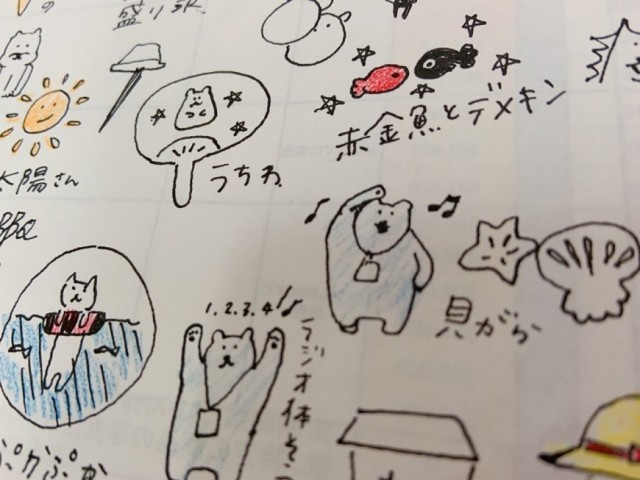 の
盛り
赤金魚とデメキン
太陽さん
うちわ
BBQ
貝がら
1.2.3.4!
ラジオ体そう
ぷかぷか